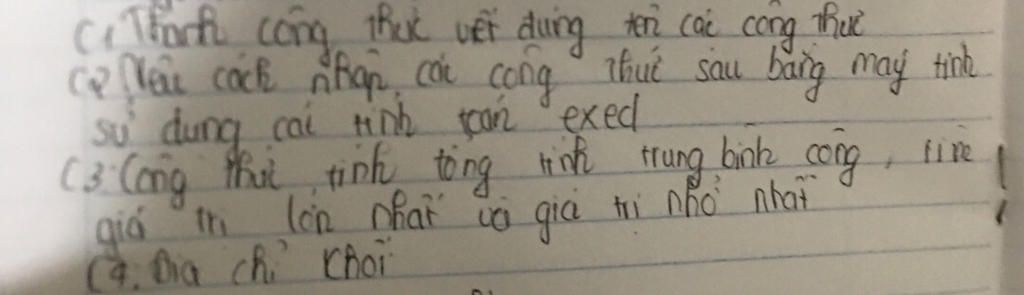 C1 Thành công thức viết dung tên các công thức
C2 Nêu cách nhập các công thức sau bằng máy tính
sử dung cai tính toán exed
C3: Công thức tính tổng tính trung bình công, tìm
giá trị lớn nhất và giá trị nhỏ nhất
C4: Địa chỉ khối